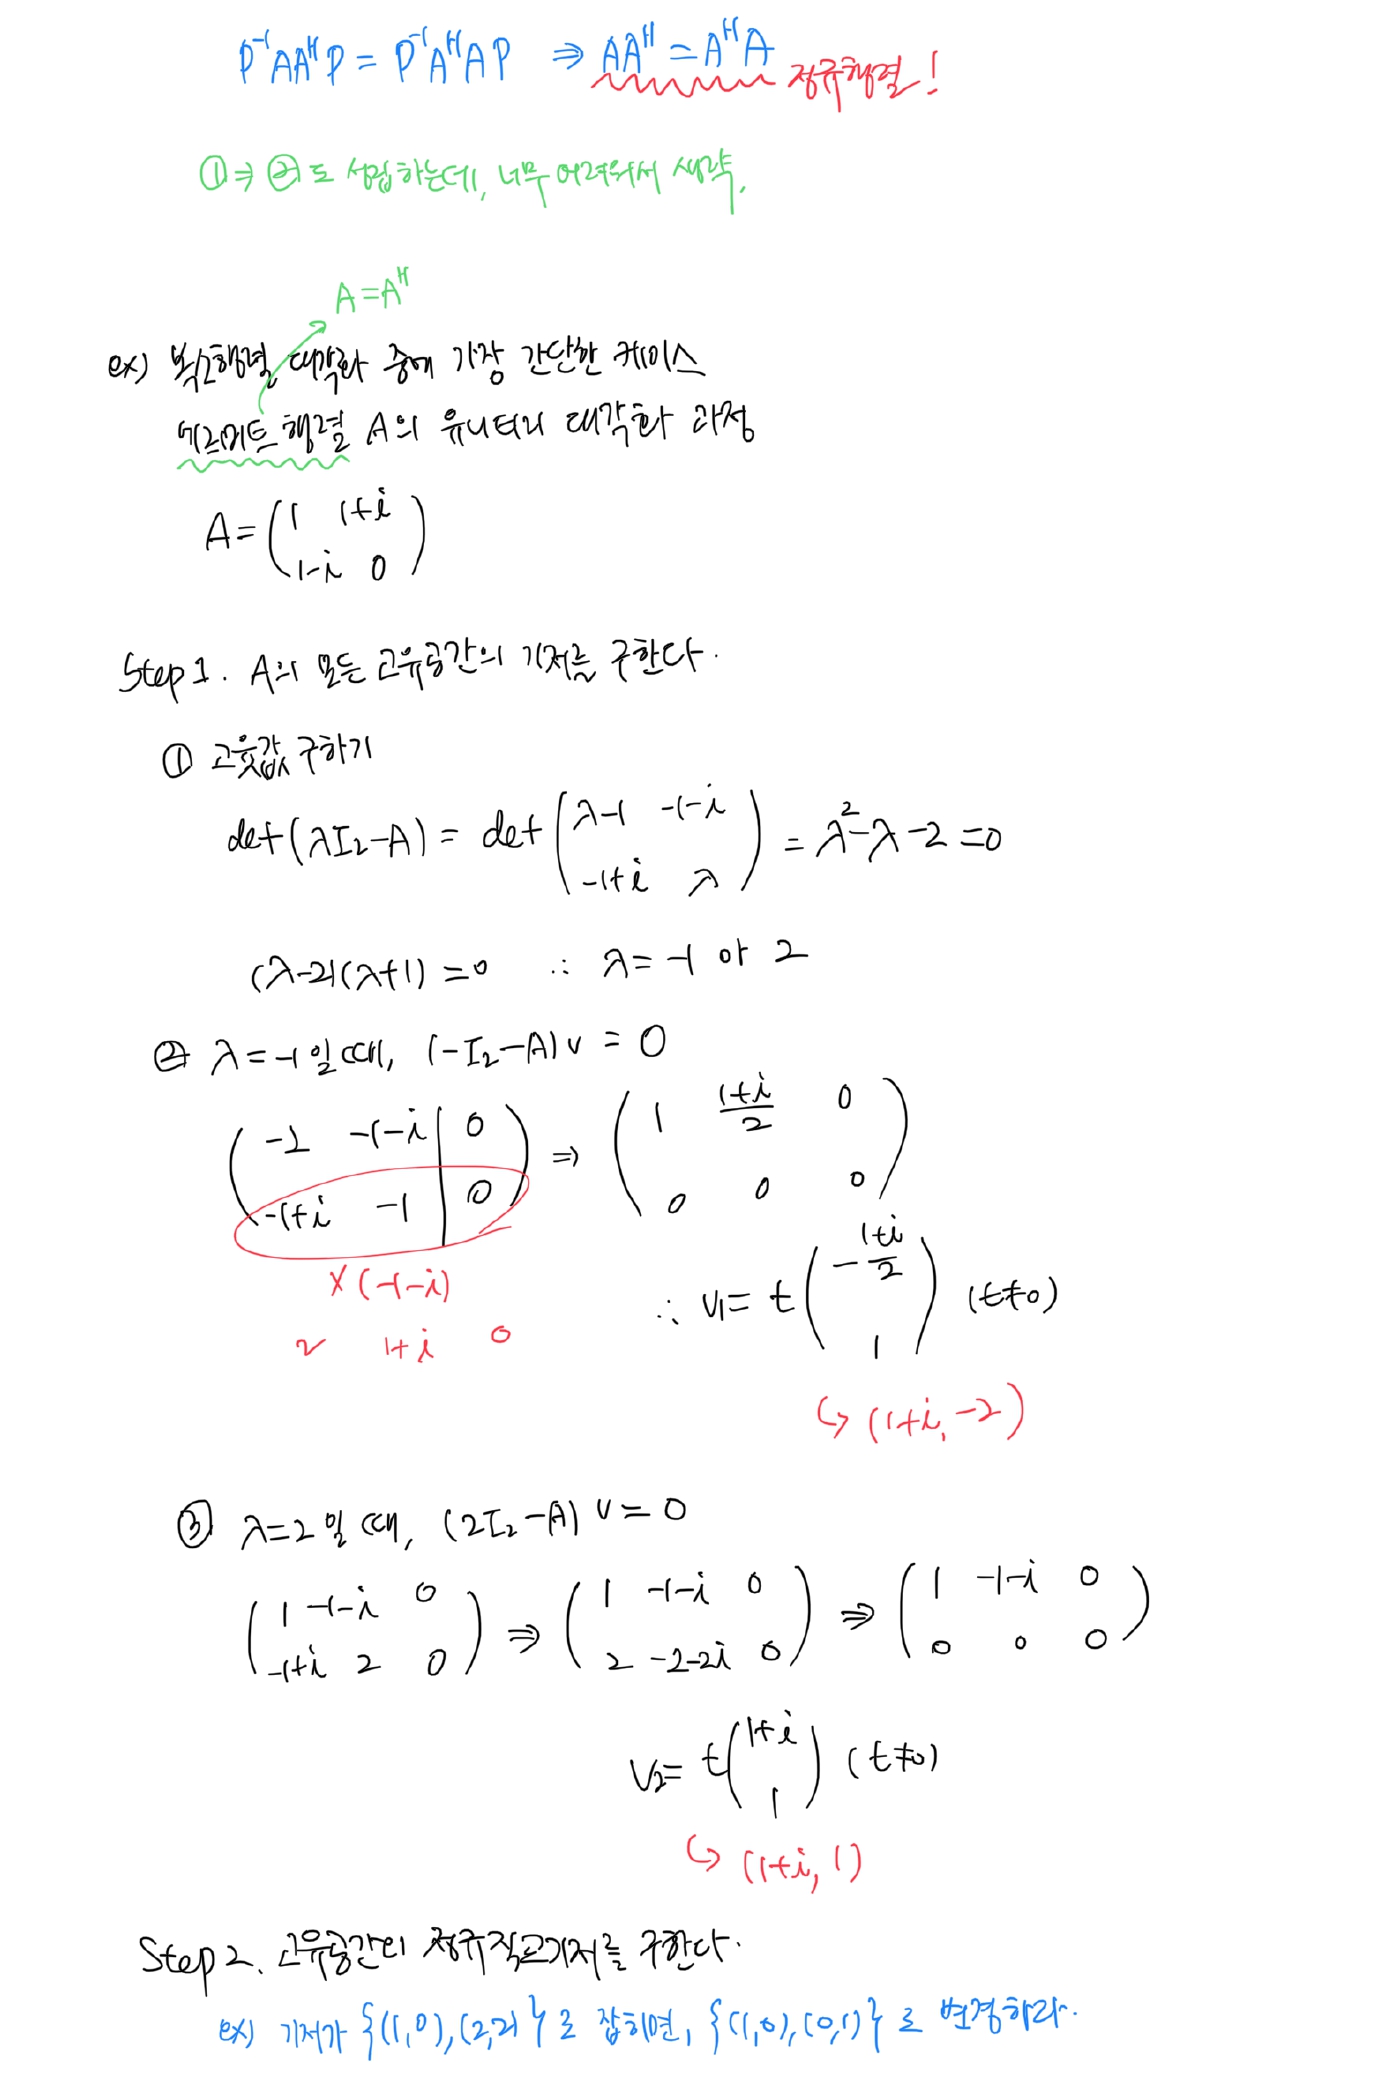 P⁻¹AAᴴP = P⁻¹AᴴAP ⇒ AAᴴ = AᴴA 정규행렬!
① ⇒ ② 도 성립하는데, 너무 어려워서 생략.
A = Aᴴ
ex) 복소행렬 대각화 중에 가장 간단한 케이스
에르미트 행렬 A의 유니터리 대각화 과정
A = ( 1 1+i
1-i 0 )
Step 1. A의 모든 고유공간의 기저를 구한다.
① 고윳값 구하기
det(λI₂-A) = det ( λ-1 -1-i
-1+i λ ) = λ²-λ-2 = 0
(λ-2)(λ+1) = 0 ∴ λ = -1 or 2
② λ = -1 일 때, (-I₂-A)v = 0
( -2 -1-i | 0
-1+i -1 | 0 ) ⇒ ( 1 (1+i)/2 0
0 0 0 )
×(-1-i)
2 1+i 0
∴ v₁ = t ( -(1+i)/2
1 ) (t≠0)
↪ (1+i, -2)
③ λ=2 일 때, (2I₂-A) v = 0
( 1 -1-i 0
-1+i 2 0 ) ⇒ ( 1 -1-i 0
2 -2-2i 0 ) ⇒ ( 1 -1-i 0
0 0 0 )
v₂ = t ( 1+i
1 ) (t≠0)
↪ (1+i, 1)
Step 2. 고유공간의 정규직교기저를 구한다.
ex) 기저가 {(1,0), (2,2)} 로 잡히면, {(1,0), (0,1)} 로 변경하라.